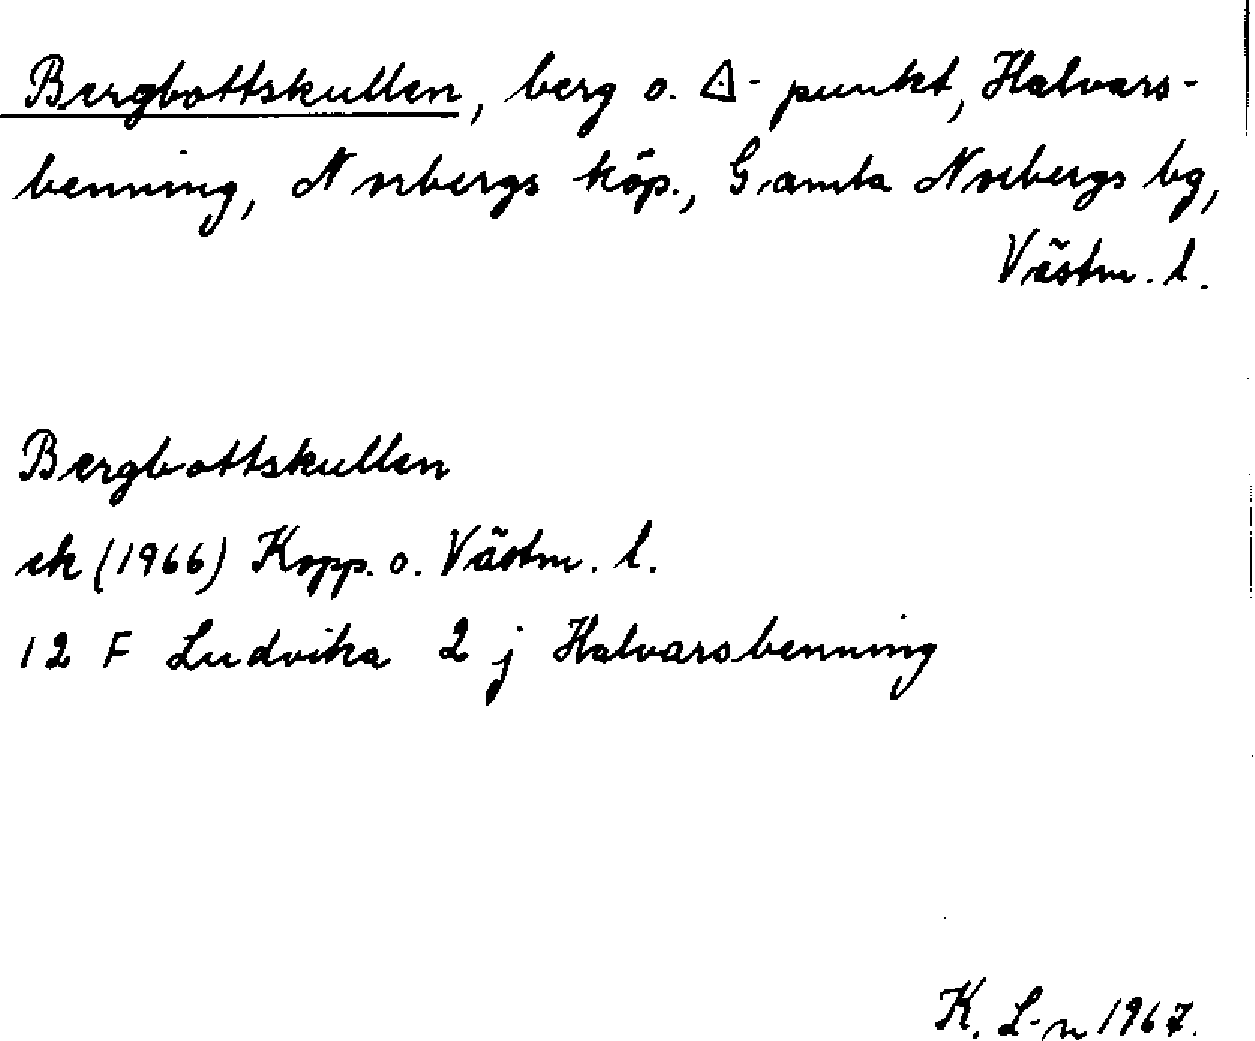 Bergbottskullen, berg o. △-punkt, Halvars-
benning, Norbergs köp., Gamla Norbergs bg,
Västm. l.
Bergbottskullen
ek (1966) Kopp. o. Västm. l.
12 F Ludvika 2 j Halvarsbenning
K. L-n 1967.